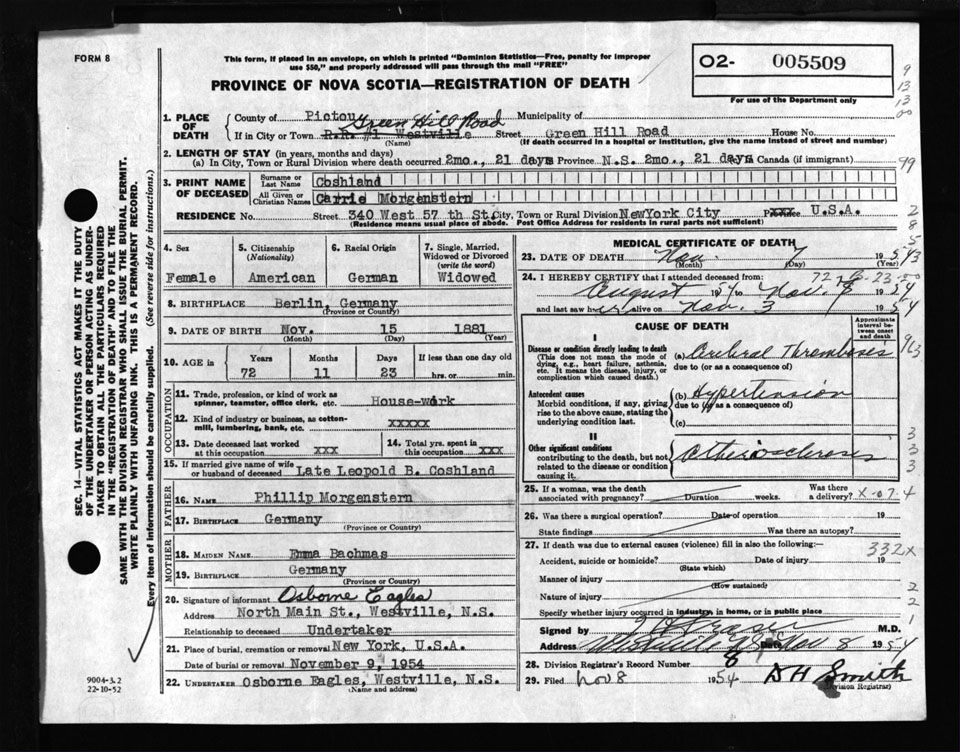 FORM 8
This form, if placed in an envelope, on which is printed "Dominion Statistics—Free, penalty for improper
use $50," and properly addressed will pass through the mail "FREE"
PROVINCE OF NOVA SCOTIA—REGISTRATION OF DEATH
O2- 005509
For use of the Department only
1. PLACE OF DEATH
County of Pictou Municipality of
Green Hill Road
If in City or Town R.R. #1 Westville Street Green Hill Road House No.
(Name) (If death occurred in a hospital or institution, give the name instead of street and number)
2. LENGTH OF STAY (in years, months and days)
(a) In City, Town or Rural Division where death occurred 2mo., 21 days Province N.S. 2mo., 21 days Canada (if immigrant)
99
3. PRINT NAME OF DECEASED
Surname or Last Name Coshland
All Given or Christian Names Carrie Morgenstern
RESIDENCE No. Street 340 West 57 th St. City, Town or Rural Division NewYork City Province xxx U.S.A.
(Residence means usual place of abode. Post Office Address for residents in rural parts not sufficient)
4. Sex
Female
5. Citizenship (Nationality)
American
6. Racial Origin
German
7. Single, Married, Widowed or Divorced (write the word)
Widowed
8. BIRTHPLACE Berlin, Germany
(Province or Country)
9. DATE OF BIRTH Nov. 15 1881
(Month) (Day) (Year)
10. AGE in Years Months Days If less than one day old
72 11 23 hrs. or min.
OCCUPATION
11. Trade, profession, or kind of work as spinner, teamster, office clerk, etc. House-work
12. Kind of industry or business, as cotton-mill, lumbering, bank, etc. xxxxx
13. Date deceased last worked at this occupation xxx
14. Total yrs. spent in this occupation xxx
15. If married give name of wife or husband of deceased Late Leopold B. Coshland
FATHER
16. NAME Phillip Morgenstern
17. BIRTHPLACE Germany
(Province or Country)
MOTHER
18. MAIDEN NAME Emma Bachmas
19. BIRTHPLACE Germany
(Province or Country)
20. Signature of informant Osborne Eagles
Address North Main St., Westville, N.S.
Relationship to deceased Undertaker
21. Place of burial, cremation or removal New York, U.S.A.
Date of burial or removal November 9, 1954
22. UNDERTAKER Osborne Eagles, Westville, N.S.
(Name and address)
MEDICAL CERTIFICATE OF DEATH
23. DATE OF DEATH Nov. 7 1954
(Month) (Day) (Year)
24. I HEREBY CERTIFY that I attended deceased from
August 1954 to Nov. 1954
and last saw her alive on Nov. 3 1954
CAUSE OF DEATH
Approximate interval between onset and death
I
Disease or condition directly leading to death
(This does not mean the mode of dying, e.g., heart failure, asthenia, etc. It means the disease, injury, or complication which caused death.)
(a) Cerebral Thromboses
due to (or as a consequence of)
Antecedent causes
Morbid conditions, if any, giving rise to the above cause, stating the underlying condition last.
(b) Hypertension
due to (or as a consequence of)
(c)
II
Other significant conditions
contributing to the death, but not related to the disease or condition causing it.
Atherosclerosis
25. If a woman, was the death associated with pregnancy? Duration weeks. Was there a delivery? X-07-4
26. Was there a surgical operation? Date of operation 19
State findings Was there an autopsy?
27. If death was due to external causes (violence) fill in also the following:—
332x
Accident, suicide or homicide? Date of injury 19
(State which)
Manner of injury
(How sustained)
Nature of injury
Specify whether injury occurred in industry, in home, or in public place
Signed by Fraser M.D.
Address Westville N.S. Date Nov 8 1954
28. Division Registrar's Record Number 8
29. Filed Nov 8 1954 D H Smith
Division Registrar
SEC. 14—VITAL STATISTICS ACT MAKES IT THE DUTY
OF THE UNDERTAKER OR PERSON ACTING AS UNDER-
TAKER TO OBTAIN ALL THE PARTICULARS REQUIRED
IN THE "REGISTRATION OF DEATH" AND TO FILE THE
SAME WITH THE DIVISION REGISTRAR WHO SHALL ISSUE THE BURIAL PERMIT.
WRITE PLAINLY WITH UNFADING INK. THIS IS A PERMANENT RECORD.
Every item of information should be carefully supplied. (See reverse side for instructions.)
9004-3.2
22-10-52